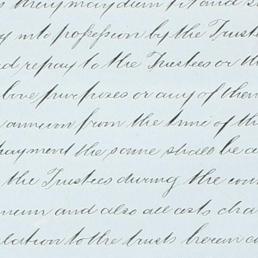 they may deem fit and
into possession by the Trustees
repay to the Trustees or the
above purposes or any of them
annum from the time of the
payment the same shall be a
the Trustees during the con
annum and also all costs cha
relation to the trusts herein co